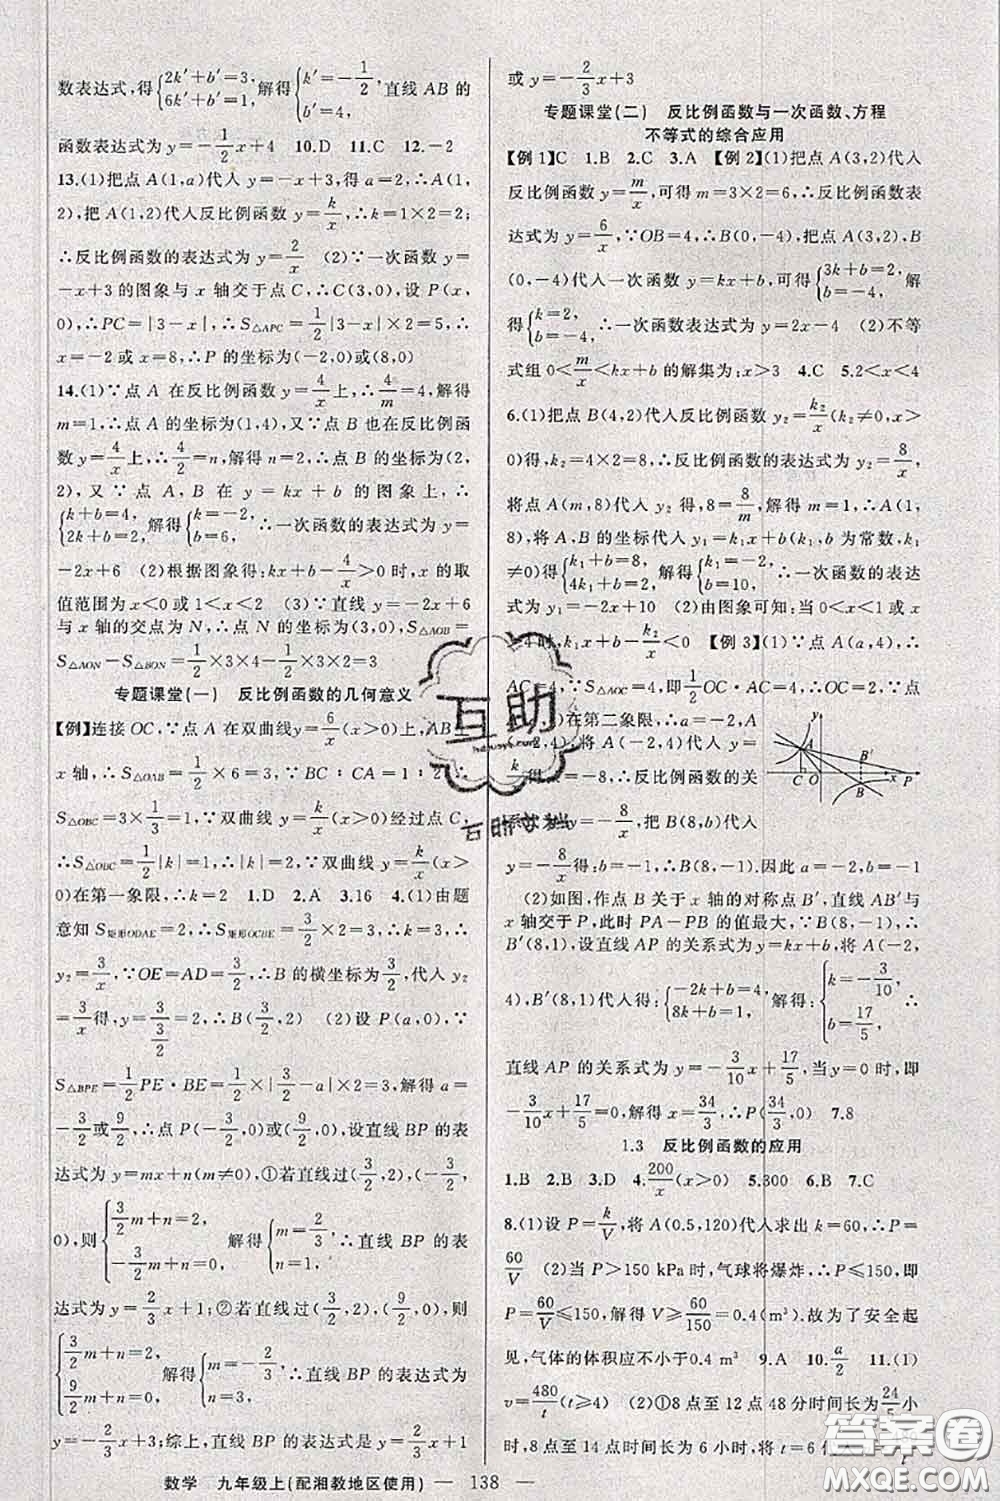 数表达式,得{2k′+b′=3, 6k′+b′=1, 解得{k′=-1/2, b′=4, 直线 AB 的
函数表达式为 y=-1/2x+4 10.D 11.C 12.-2
13.(1)把点 A(1,a)代入 y=-x+3,得 a=2,∴A(1,
2),把 A(1,2)代入反比例函数 y=k/x,∴k=1×2=2;
∴反比例函数的表达式为 y=2/x (2)∵一次函数 y=
-x+3 的图象与 x 轴交于点 C,∴C(3,0),设 P(x,
0),∴PC=|3-x|,∴S△APC=1/2|3-x|×2=5,∴
x=-2 或 x=8,∴P 的坐标为(-2,0)或(8,0)
14.(1)∵点 A 在反比例函数 y=4/x上,∴4/m=4,解得
m=1,∴点 A 的坐标为(1,4),又∵点 B 也在反比例函
数 y=4/x上,∴4/2=n,解得 n=2,∴点 B 的坐标为(2,
2),又∵点 A、B 在 y=kx+b 的图象上,∴
{k+b=4, 2k+b=2, 解得{k=-2, b=6, ∴一次函数的表达式为 y=
-2x+6 (2)根据图象得:kx+b-4/x>0 时,x 的取
值范围为 x<0 或 1<x<2 (3)∵直线 y=-2x+6
与 x 轴的交点为 N,∴点 N 的坐标为(3,0),S△AOB=
S△AON-S△BON=1/2×3×4-1/2×3×2=3
专题课堂(一) 反比例函数的几何意义
【例】连接 OC,∵点 A 在双曲线 y=6/x(x>0)上,AB⊥
x 轴,∴S△OAB=1/2×6=3,∵BC∶CA=1∶2,∴
S△OBC=3×1/3=1,∵双曲线 y=k/x经过点 C,
∴S△OBC=1/2|k|=1,∴|k|=2,∵双曲线 y=k/x(x>
0)在第一象限,∴k=2 1.D 2.A 3.16 4.(1)由题
意知 S矩形ODAE=1/2×3=3/2,∴S矩形OCBE=3/2+3/2=3,∴
y₂=3/x,∵OE=AD=3/2,∴B 的横坐标为3/2,代入 y₂
=3/x得,y=3/(3/2)=2,∴B(3/2,2) (2)设 P(a,0),∵
S△BPE=1/2PE·BE=1/2×|3/2-a|×2=3,解得 a=
-3/2或9/2,∴点 P(-3/2,0)或(9/2,0),设直线 BP 的表
达式为 y=mx+n(m≠0),①若直线过(3/2,2),(-3/2,
0),则{3/2m+n=2, -3/2m+n=0, 解得{m=2/3, n=1, ∴直线 BP 的表
达式为 y=2/3x+1;②若直线过(3/2,2),(9/2,0),则
{3/2m+n=2, 9/2m+n=0, 解得{m=-2/3, n=3, ∴直线 BP 的表达式为
y=-2/3x+3;综上,直线 BP 的表达式是 y=2/3x+1
或 y=-2/3x+3
专题课堂(二) 反比例函数与一次函数、方程
不等式的综合应用
【例 1】C 1.B 2.C 3.A 【例 2】(1)把点 A(3,2)代入
反比例函数 y=m/x,可得 m=3×2=6,∴反比例函数表
达式为 y=6/x,∵OB=4,∴B(0,-4),把点 A(3,2),B
(0,-4)代入一次函数 y=kx+b,可得{3k+b=2, b=-4, 解
得{k=2, b=-4, ∴一次函数表达式为 y=2x-4 (2)不等
式组 0<m/x<kx+b 的解集为:x>3 4.C 5.2<x<4
6.(1)把点 B(4,2)代入反比例函数 y₂=k₂/x(k₂≠0,x>
0)得,k₂=4×2=8,∴反比例函数的表达式为 y₂=8/x,
将点 A(m,8)代入 y₂ 得,8=8/m,解得 m=1,∴A(1,
8),将 A、B 的坐标代入 y₁=k₁x+b(k₁、b 为常数,k₁
≠0)得{k₁+b=8, 4k₁+b=2, 解得{k₁=-2, b=10, ∴一次函数的表达
式为 y₁=-2x+10 (2)由图象可知:当 0<x<1 或 x
>4 时,k₁x+b-k₂/x<0 【例 3】(1)∵点 A(a,4),∴
AC=4,∵S△AOC=4,即1/2OC·AC=4,∴OC=2,∵点
在第二象限,∴a=-2,A
(-2,4),将 A(-2,4)代入 y=
k/x得:k=-8,∴反比例函数的关
系式为 y=-8/x,把 B(8,b)代入
y=-8/x得:b=-1,∴B(8,-1).因此 a=-2,b=-1
(2)如图,作点 B 关于 x 轴的对称点 B′,直线 AB′与
x 轴交于 P,此时 PA-PB 的值最大,∵B(8,-1),∴
B′(8,1),设直线 AP 的关系式为 y=kx+b,将 A(-2,
4),B′(8,1)代入得:{-2k+b=4, 8k+b=1, 解得:{k=-3/10, b=17/5, ∴
直线 AP 的关系式为 y=-3/10x+17/5,当 y=0 时,即
-3/10x+17/5=0,解得 x=34/3,∴P(34/3,0) 7.8
A B′ C O B x P y
1.3 反比例函数的应用
1.B 2.B 3.D 4.200/x(x>0) 5.300 6.B 7.C
8.(1)设 P=k/V,将 A(0.5,120)代入求出 k=60,∴P=
60/V (2)当 P>150 kPa 时,气球将爆炸,∴P≤150,即
P=60/V≤150,解得 V≥60/150=0.4(m³).故为了安全起
见,气体的体积应不小于0.4 m³ 9.A 10.a/2 11.(1)
v=480/t(t≥4) (2)①8 点至 12 点 48 分时间长为24/5小
时,8 点至 14 点时间长为 6 小时,将 t=6 代入 v=480/t
数学 九年级上(配湘教地区使用) — 138 —
互助
答案圈
MXQE.COM